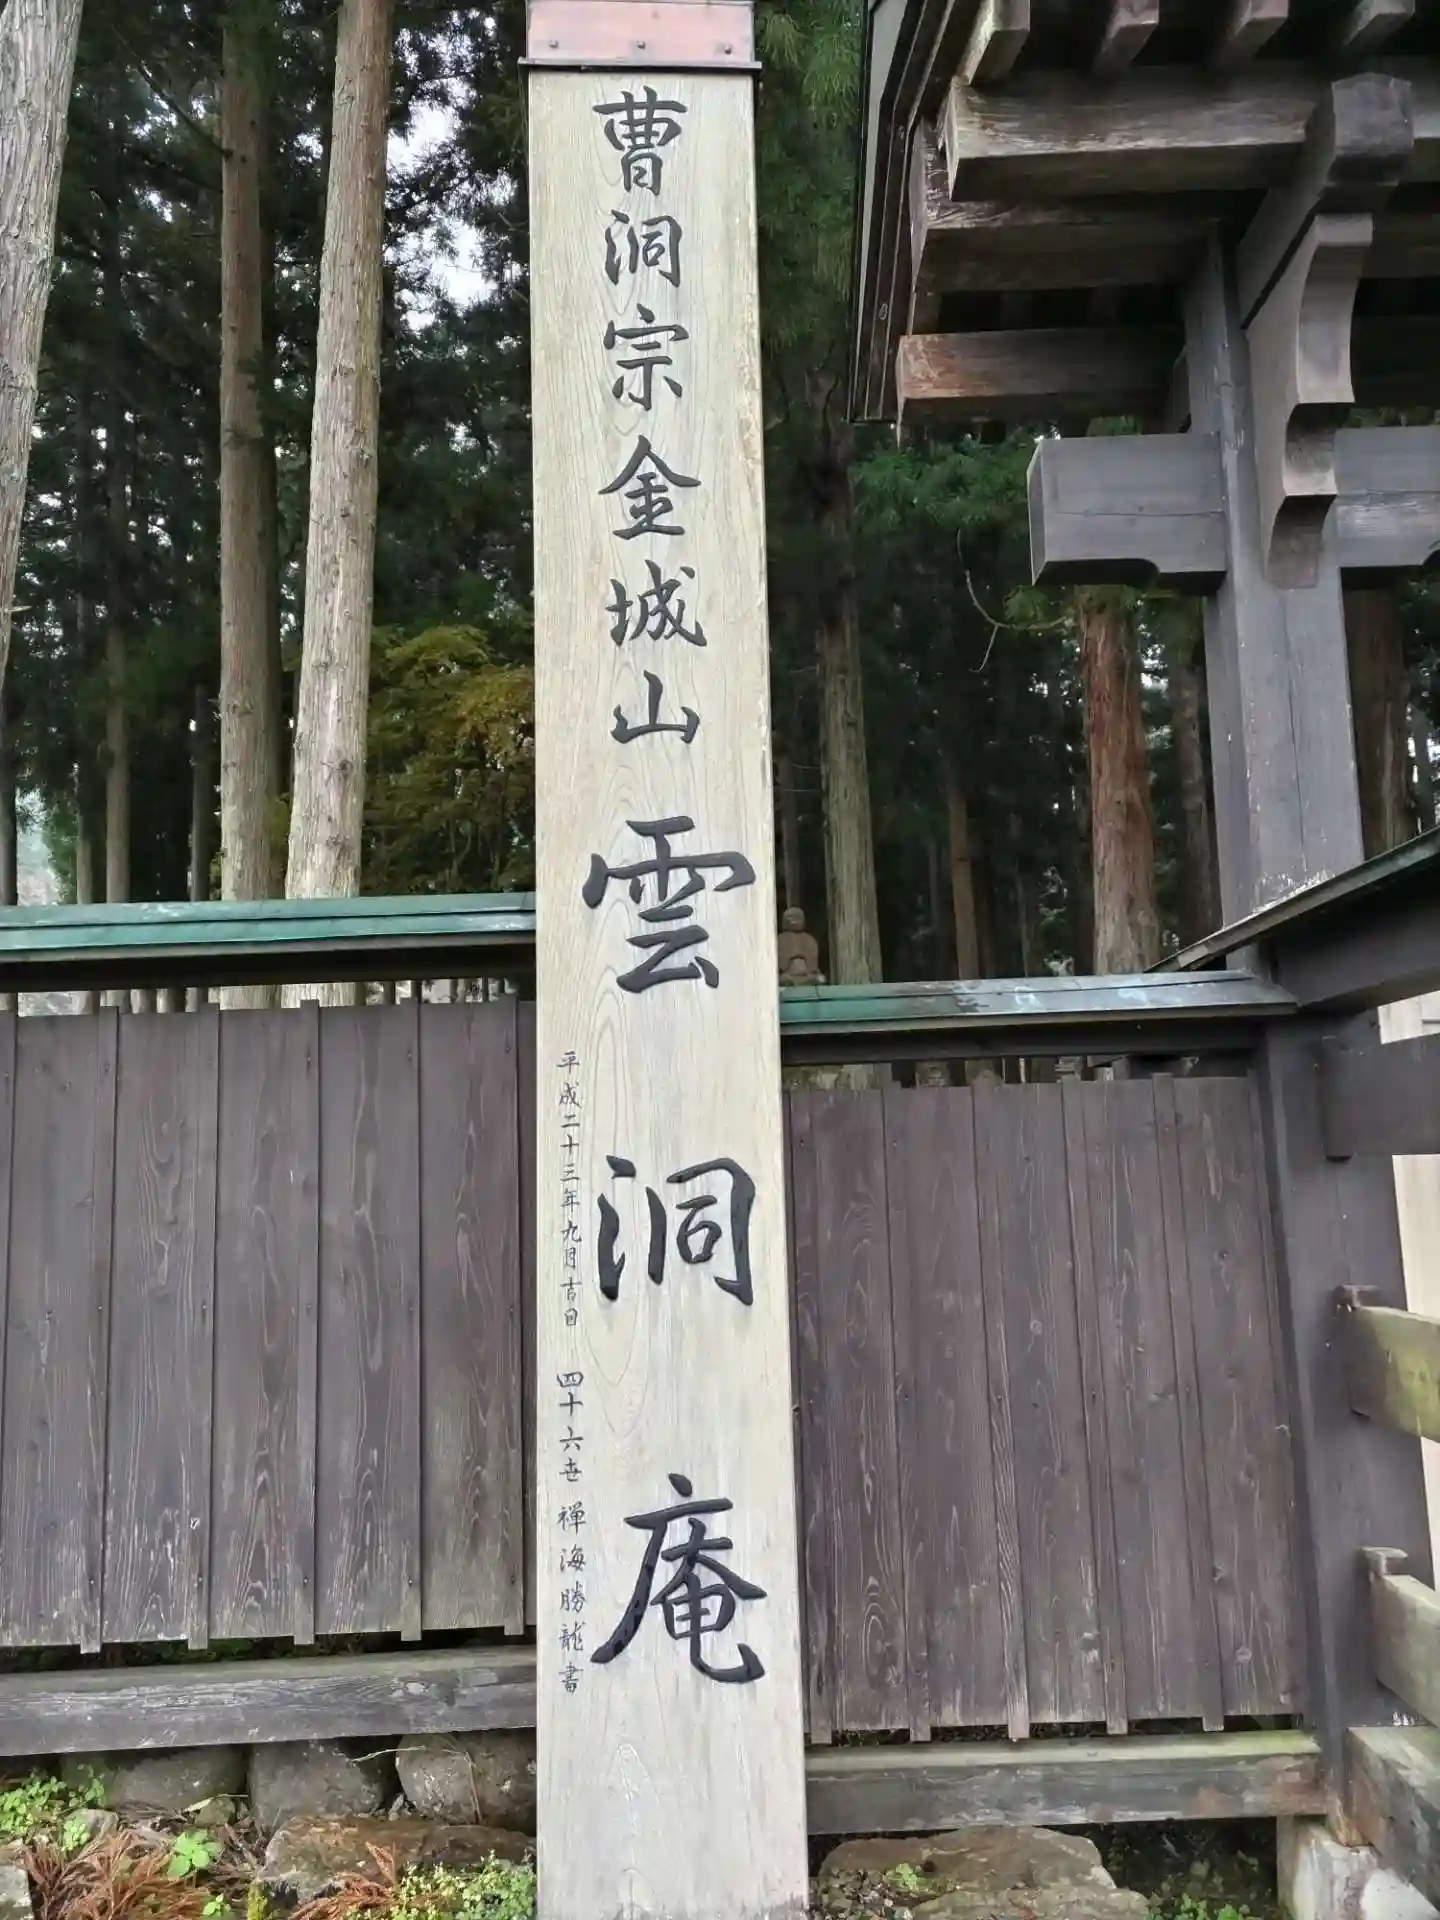 曹洞宗金城山雲洞庵
平成二十三年九月吉日 四十六世 禅海勝龍書